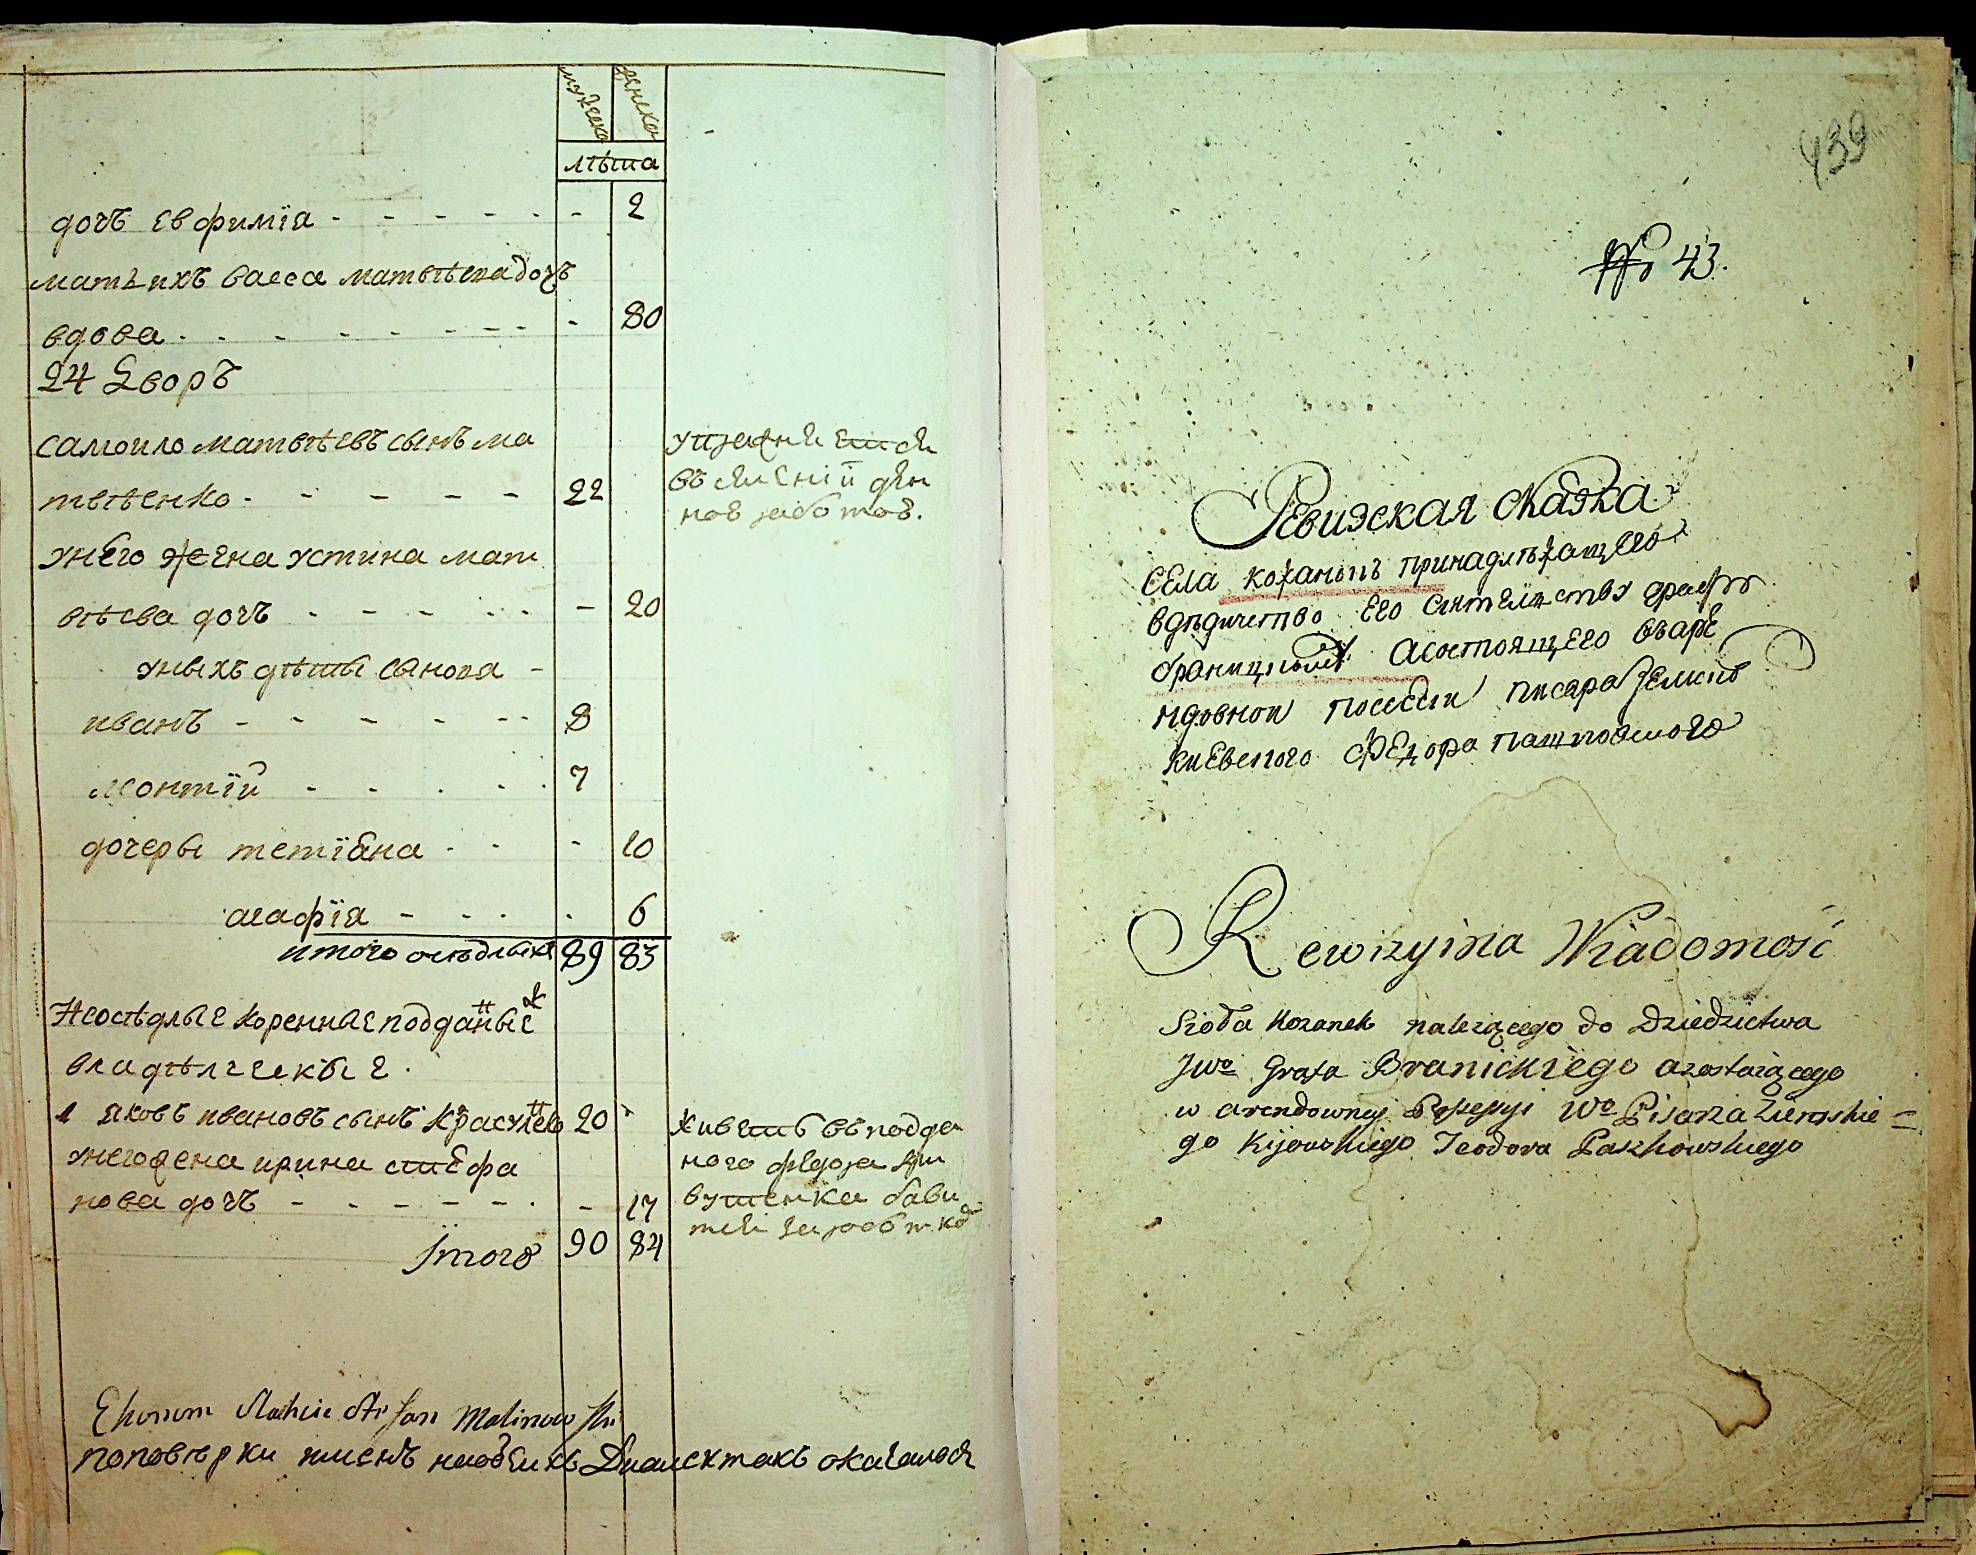 мужеска женска
лѣта
дочъ евфимїя - - - - - - 2
матъ ихъ васса матвѣева дочъ
вдова - - - - - - - - 80
24 Дворъ
самоило матвѣевъ сынъ ма
твѣенко - - - - - 22
унего жена устина мат
вѣева дочъ - - - - - - 20
уныхъ дѣты сынова -
иванъ - - - - - - 8
монтїй - - - - - 7
дочеры тетїяна - - - 10
агафїя - - - - 6
итого осѣдлыхъ 89 83
Неосѣдлые коренные подданые
владѣлческые.
1 яковъ ивановъ сынъ Красу 20
унего жена ирина стефа
нова дочъ - - - - - - - 17
Живетъ въ подда
ного федора
Їтого 90 84
Ekonom Malinowski
поповѣрки именъ на обѣихъ Диалектахъ оказалося
439
No 43.
Ревизская сказка
села кожанокъ принадлѣжащего
вдѣдичество Его сиятелству графу
браницкому Асостоящего въаре
ндовной посессїи писара земъскѡ
киевского Федора пашковского
Rewizyina Wiadomość
Sioła Kozanek należącego do Dziedzictwa
JWo Grafa Branickiego azostaiącego
w arendowney Possessyi Wo Pisarza Ziemskie=
go Kijowskiego Teodora Paszkowskiego